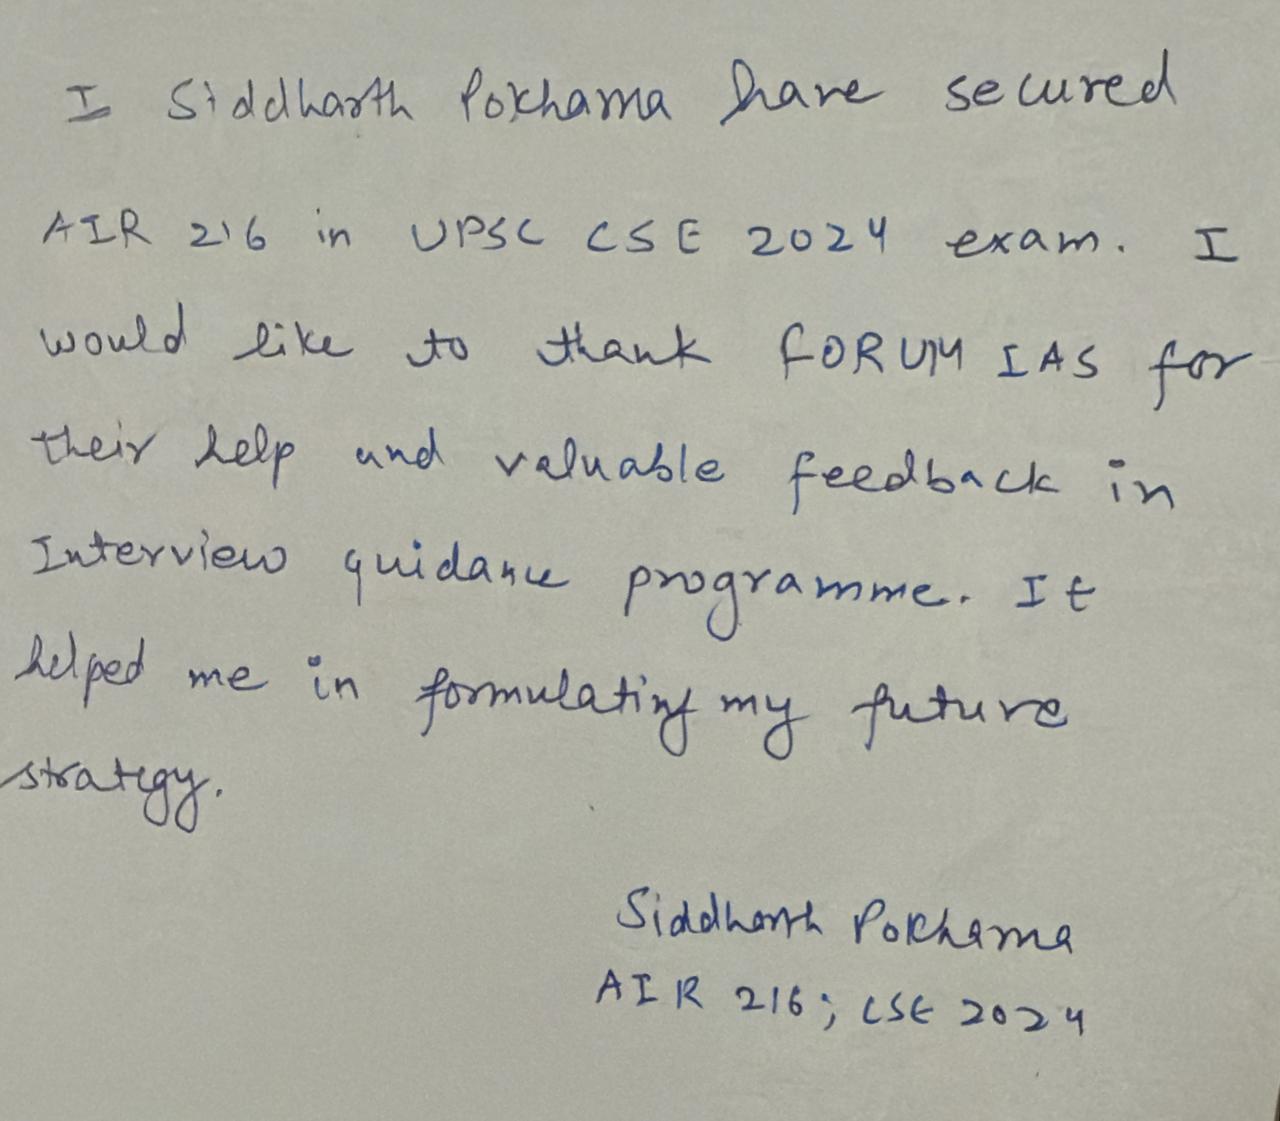 I Siddharth Pokharna have secured
AIR 216 in UPSC CSE 2024 exam. I
would like to thank FORUM IAS for
their help and valuable feedback in
Interview guidance programme. It
helped me in formulating my future
strategy.
Siddharth Pokharna
AIR 216; CSE 2024